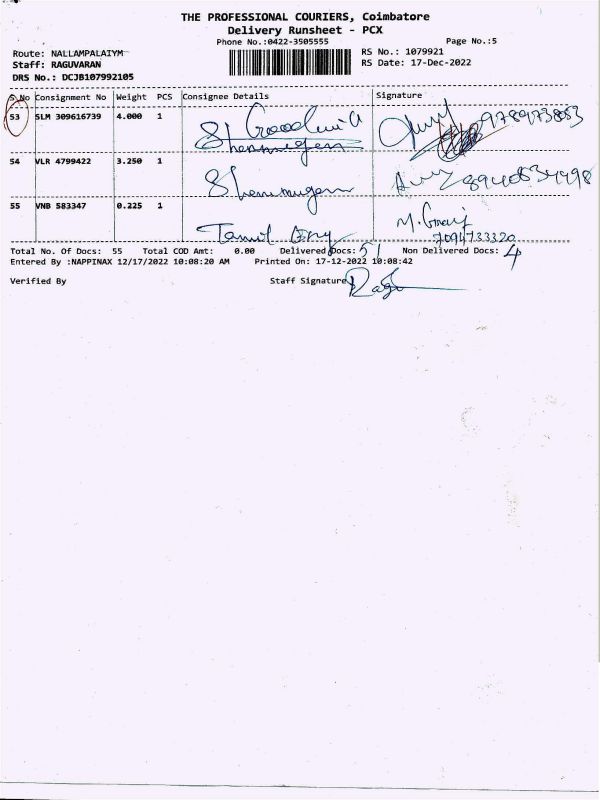 THE PROFESSIONAL COURIERS, Coimbatore
Delivery Runsheet - PCX
Phone No.:0422-3505555 Page No.:5
Route: NALLAMPALAIYM RS No.: 1079921
Staff: RAGUVARAN RS Date: 17-Dec-2022
DRS No.: DCJB107992105
S.No Consignment No Weight PCS Consignee Details Signature
53 SLM 309616739 4.000 1 Goodwill 9789973853
54 VLR 4799422 3.250 1 Shanmugam
55 VNB 583347 0.225 1 Tamil 7094733320
Total No. Of Docs: 55 Total COD Amt: 0.00 Delivered Docs: 51 Non Delivered Docs: 4
Entered By :NAPPINAX 12/17/2022 10:08:20 AM Printed On: 17-12-2022 10:08:42
Verified By Staff Signature